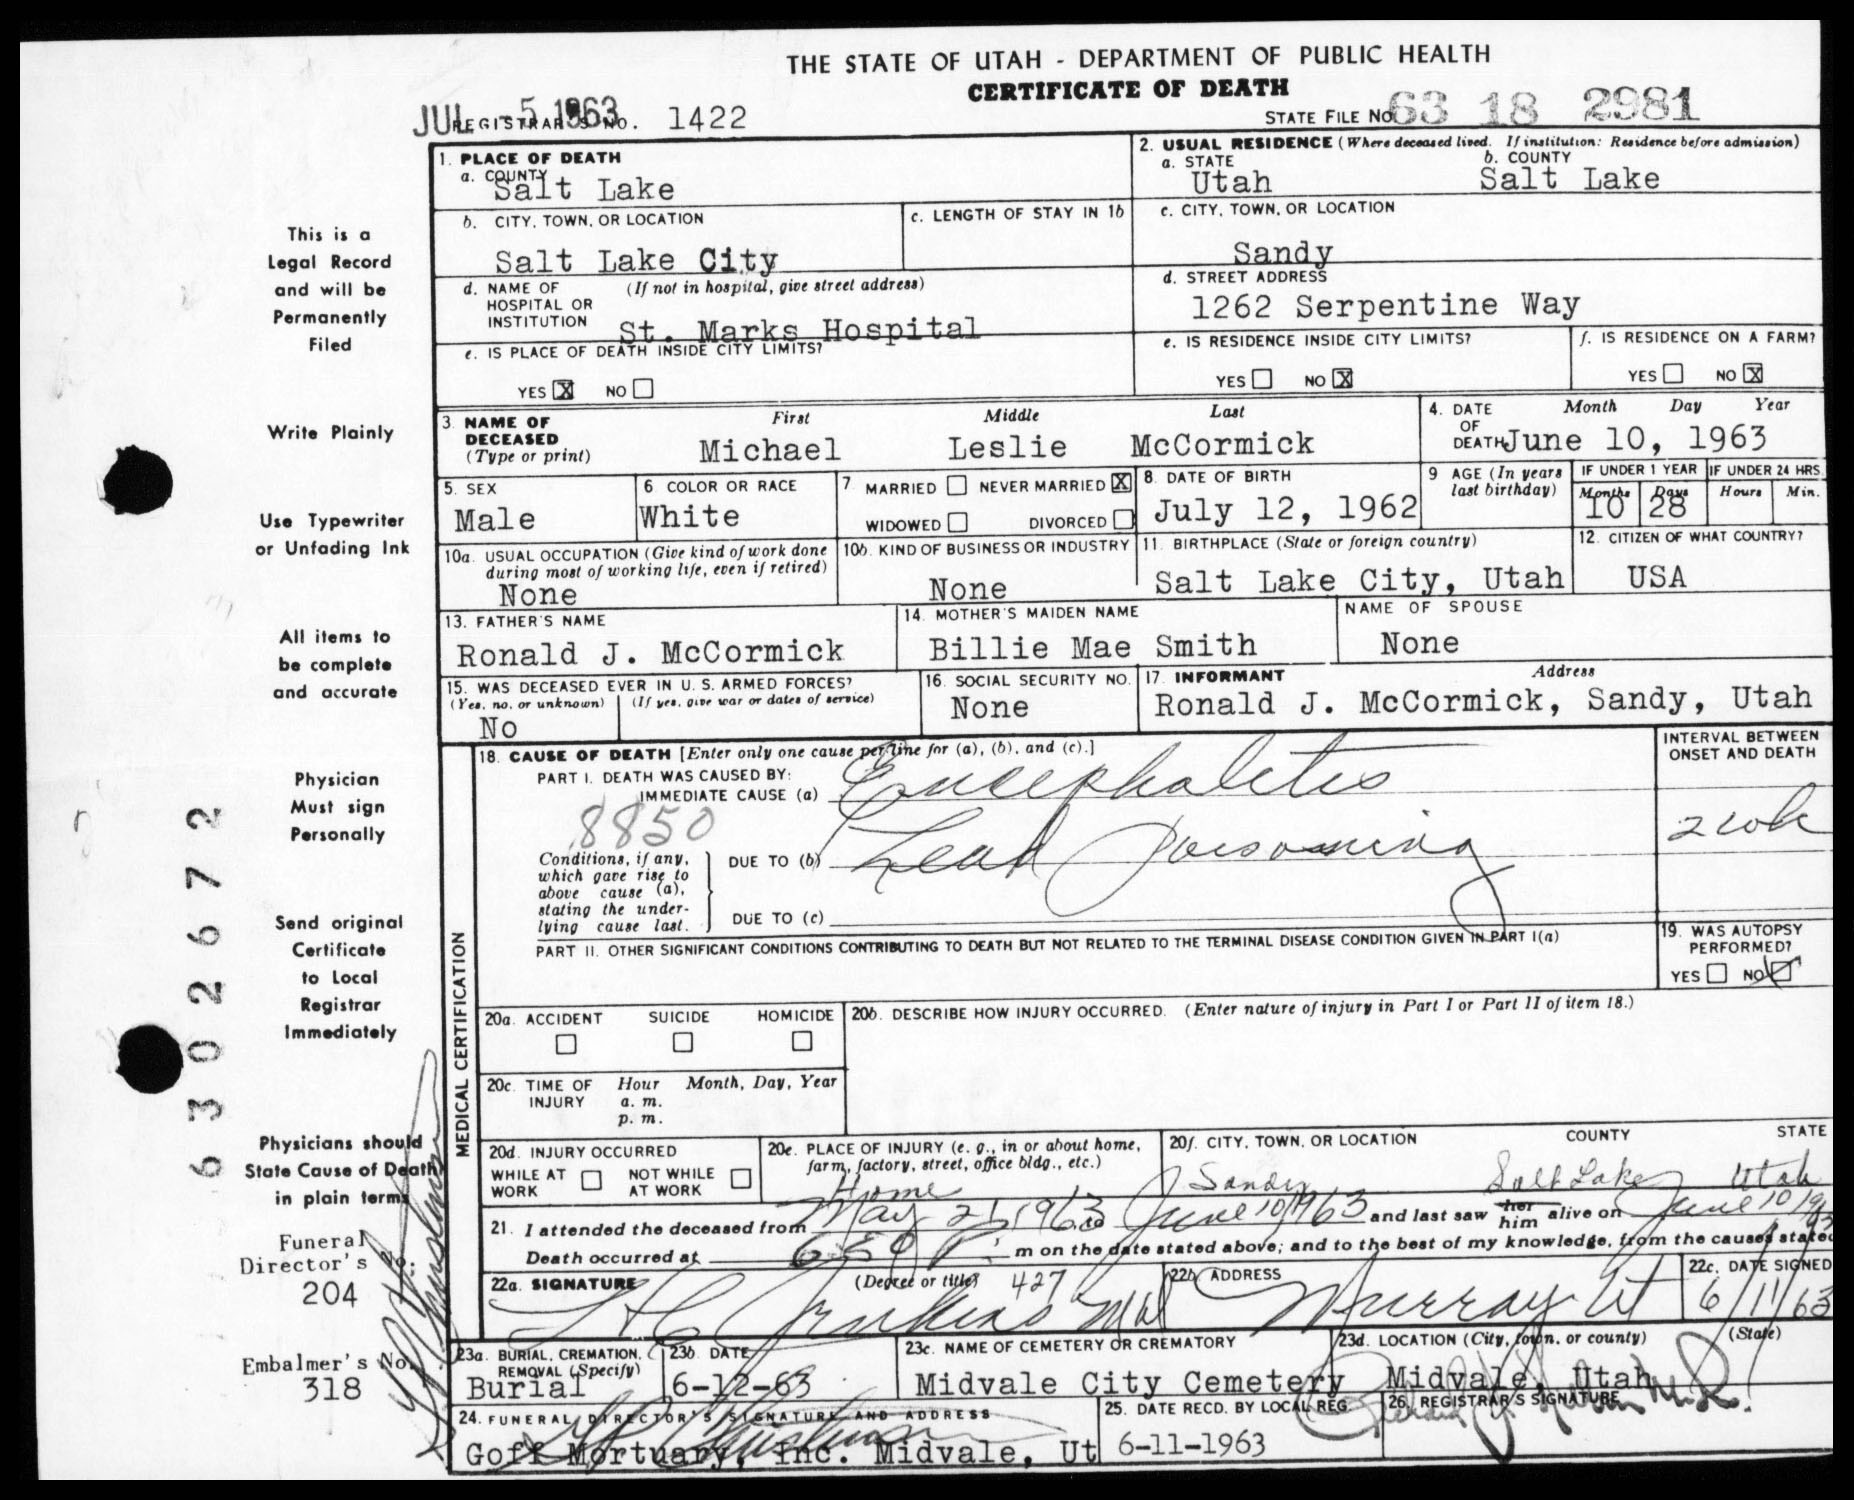 THE STATE OF UTAH - DEPARTMENT OF PUBLIC HEALTH
CERTIFICATE OF DEATH
JUL - 5 1963
REGISTRAR'S NO. 1422
STATE FILE NO. 63 18 2981
1. PLACE OF DEATH
a. COUNTY
Salt Lake
2. USUAL RESIDENCE (Where deceased lived. If institution: Residence before admission)
a. STATE b. COUNTY
Utah Salt Lake
b. CITY, TOWN, OR LOCATION
Salt Lake City
c. LENGTH OF STAY IN 1b
c. CITY, TOWN, OR LOCATION
Sandy
d. NAME OF HOSPITAL OR INSTITUTION (If not in hospital, give street address)
St. Marks Hospital
d. STREET ADDRESS
1262 Serpentine Way
e. IS PLACE OF DEATH INSIDE CITY LIMITS?
YES X NO
e. IS RESIDENCE INSIDE CITY LIMITS?
YES NO X
f. IS RESIDENCE ON A FARM?
YES NO X
3. NAME OF DECEASED (Type or print)
First Middle Last
Michael Leslie McCormick
4. DATE OF DEATH Month Day Year
June 10, 1963
5. SEX
Male
6 COLOR OR RACE
White
7 MARRIED NEVER MARRIED X
WIDOWED DIVORCED
8. DATE OF BIRTH
July 12, 1962
9 AGE (In years last birthday)
IF UNDER 1 YEAR IF UNDER 24 HRS.
Months Days Hours Min.
10 28
10a. USUAL OCCUPATION (Give kind of work done during most of working life, even if retired)
None
10b. KIND OF BUSINESS OR INDUSTRY
None
11. BIRTHPLACE (State or foreign country)
Salt Lake City, Utah
12. CITIZEN OF WHAT COUNTRY?
USA
13. FATHER'S NAME
Ronald J. McCormick
14. MOTHER'S MAIDEN NAME
Billie Mae Smith
NAME OF SPOUSE
None
15. WAS DECEASED EVER IN U.S. ARMED FORCES?
(Yes, no, or unknown) (If yes, give war or dates of service)
No
16. SOCIAL SECURITY NO.
None
17. INFORMANT Address
Ronald J. McCormick, Sandy, Utah
MEDICAL CERTIFICATION
18. CAUSE OF DEATH [Enter only one cause per line for (a), (b), and (c).]
PART I. DEATH WAS CAUSED BY:
IMMEDIATE CAUSE (a) Encephalitis
8850
Conditions, if any, which gave rise to above cause (a), stating the underlying cause last.
DUE TO (b) Lead Poisoning
DUE TO (c)
INTERVAL BETWEEN ONSET AND DEATH
2 wk
PART II. OTHER SIGNIFICANT CONDITIONS CONTRIBUTING TO DEATH BUT NOT RELATED TO THE TERMINAL DISEASE CONDITION GIVEN IN PART I(a)
19. WAS AUTOPSY PERFORMED?
YES NO
20a. ACCIDENT SUICIDE HOMICIDE
20b. DESCRIBE HOW INJURY OCCURRED. (Enter nature of injury in Part I or Part II of item 18.)
20c. TIME OF INJURY Hour Month, Day, Year
a. m.
p. m.
20d. INJURY OCCURRED
WHILE AT WORK NOT WHILE AT WORK
20e. PLACE OF INJURY (e. g., in or about home, farm, factory, street, office bldg., etc.)
Home
20f. CITY, TOWN, OR LOCATION COUNTY STATE
Sandy Salt Lake Utah
21. I attended the deceased from May 21, 1963 to June 10, 1963 and last saw her him alive on June 10 1963
Death occurred at 6:59 P. m on the date stated above; and to the best of my knowledge, from the causes stated
22a. SIGNATURE (Degree or title) 427
H C Jenkins MD
22b. ADDRESS
Murray Ut
22c. DATE SIGNED
6/11/63
23a. BURIAL, CREMATION, REMOVAL (Specify)
Burial
23b. DATE
6-12-63
23c. NAME OF CEMETERY OR CREMATORY
Midvale City Cemetery
23d. LOCATION (City, town, or county) (State)
Midvale, Utah
24. FUNERAL DIRECTOR'S SIGNATURE AND ADDRESS
Goff Mortuary, Inc. Midvale, Ut
25. DATE RECD. BY LOCAL REG.
6-11-1963
26. REGISTRAR'S SIGNATURE
This is a
Legal Record
and will be
Permanently
Filed
Write Plainly
Use Typewriter
or Unfading Ink
All items to
be complete
and accurate
Physician
Must sign
Personally
Send original
Certificate
to Local
Registrar
Immediately
Physicians should
State Cause of Death
in plain terms
Funeral
Director's No:
204
Embalmer's No.
318
6302672